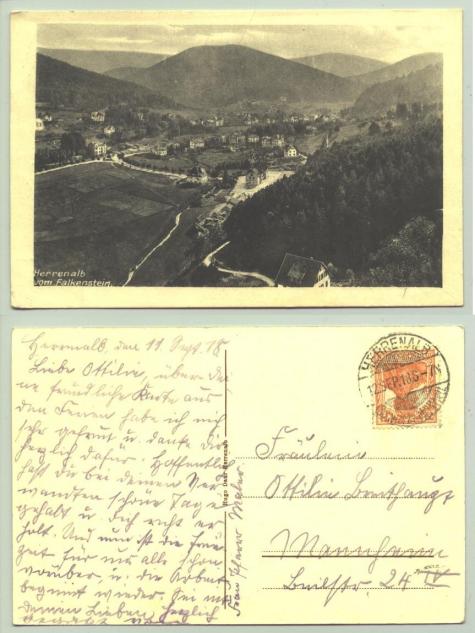 Herrenalb
vom Falkenstein.
Herrenalb, den 11. Sept. 18.
Liebe Ottilie, über dei
ne freundliche Karte aus
den Ferien habe ich mich
sehr gefreut u. danke dir
herzlich dafür. Hoffentlich
hast du bei deinen Ver
wandten schöne Tage
gehabt u. dich recht er
holt. Und nun ist die
zeit für uns alle schon
vorüber, u. die Arbeit
beginnt wieder. Sei mit
deinen Lieben herzlich
gegrüßt von
Frau Maier
HERRENALB
Fräulein
Ottilie Berthaupt
Mannheim
24 IV